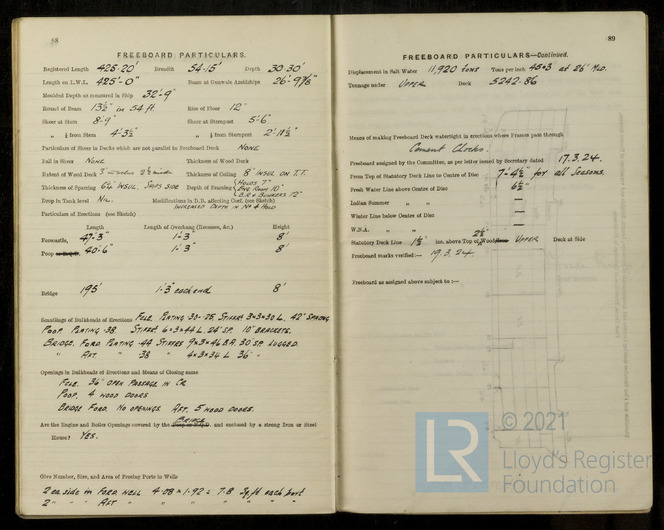 88
FREEBOARD PARTICULARS.
Registered Length 425·20' Breadth 54·15' Depth 30·30'
Length on L.W.L. 425'-0" Beam at Gunwale Amidships 26'-9⅞"
Moulded Depth as measured in Ship 32'-9"
Round of Beam 13½" in 54 ft Rise of Floor 12"
Sheer at Stem 8'-9" Sheer at Sternpost 5'-6"
" ⅛ from Stem 4'-3½" " ⅛ from Sternpost 2'-11½"
Particulars of Sheer in Decks which are not parallel to Freeboard Deck NONE
Fall in Sheer NONE Thickness of Wood Deck
Extent of Wood Deck Thickness of Ceiling 8" INSUL ON T.T.
Thickness of Sparring 6¼" INSUL. SHIPS SIDE Depth of Framing HOLDS 7"
ENG. ROOM 10"
B.R & BUNKERS 12"
Drop in Tank level NIL. Modifications in D.B. affecting Coef. (see Sketch)
INCREASED DEPTH IN No 4 HOLD
Particulars of Erections (see Sketch)
Length Length of Overhang (Recesses, &c.) Height
Forecastle, 47'-3" 1'-3" 8'
Poop 40'-6" 1'-3" 8'
Bridge 195' 1'·3" each end 8'
Scantlings of Bulkheads of Erections FCLE. PLATING ·30-·25, STIFFRS 3×3×30 L. 42" SPACING
POOP. PLATING ·38. STIFFRS. 6×3×44 L. 24" SP. 10" BRACKETS.
BRIDGE. FORD PLATING ·44 STIFFRS 9×3×46 B.A. 30" SP. LUGGED.
" AFT. " ·38 " 4×3×34 L 36" "
Openings in Bulkheads of Erections and Means of Closing same
FCLE. 36" OPEN PASSAGE IN CR
POOP. 4 WOOD DOORS
BRIDGE FORD. NO OPENINGS. AFT. 5 WOOD DOORS.
BRIDGE
Are the Engine and Boiler Openings covered by the and enclosed by a strong Iron or Steel
House? YES.
Give Number, Size, and Area of Freeing Ports in Wells
2 ea. side in FORD WELL 4·08 × 1·92 = 7·8 Sq. ft each port
2 " " " AFT " " " " "
89
FREEBOARD PARTICULARS—Continued.
Displacement in Salt Water 11,920 TONS Tons per inch 45·3 at 26' MLD.
Tonnage under UPPER Deck 5242·86
Means of making Freeboard Deck watertight in erections where Frames pass through
Cement Chocks.
Freeboard assigned by the Committee, as per letter issued by Secretary dated 17.3.24.
From Top of Statutory Deck Line to Centre of Disc 7'-4½" for all Seasons.
Fresh Water Line above Centre of Disc 6½"
Indian Summer " " —
Winter Line below Centre of Disc —
W.N.A. " " —
2½"
Statutory Deck Line 1½" ins. above Top of Wood UPPER Deck at Side
Freeboard marks verified:— 19.3.24.
Freeboard as assigned above subject to :—
LR
© 2021
Lloyd's Register
Foundation